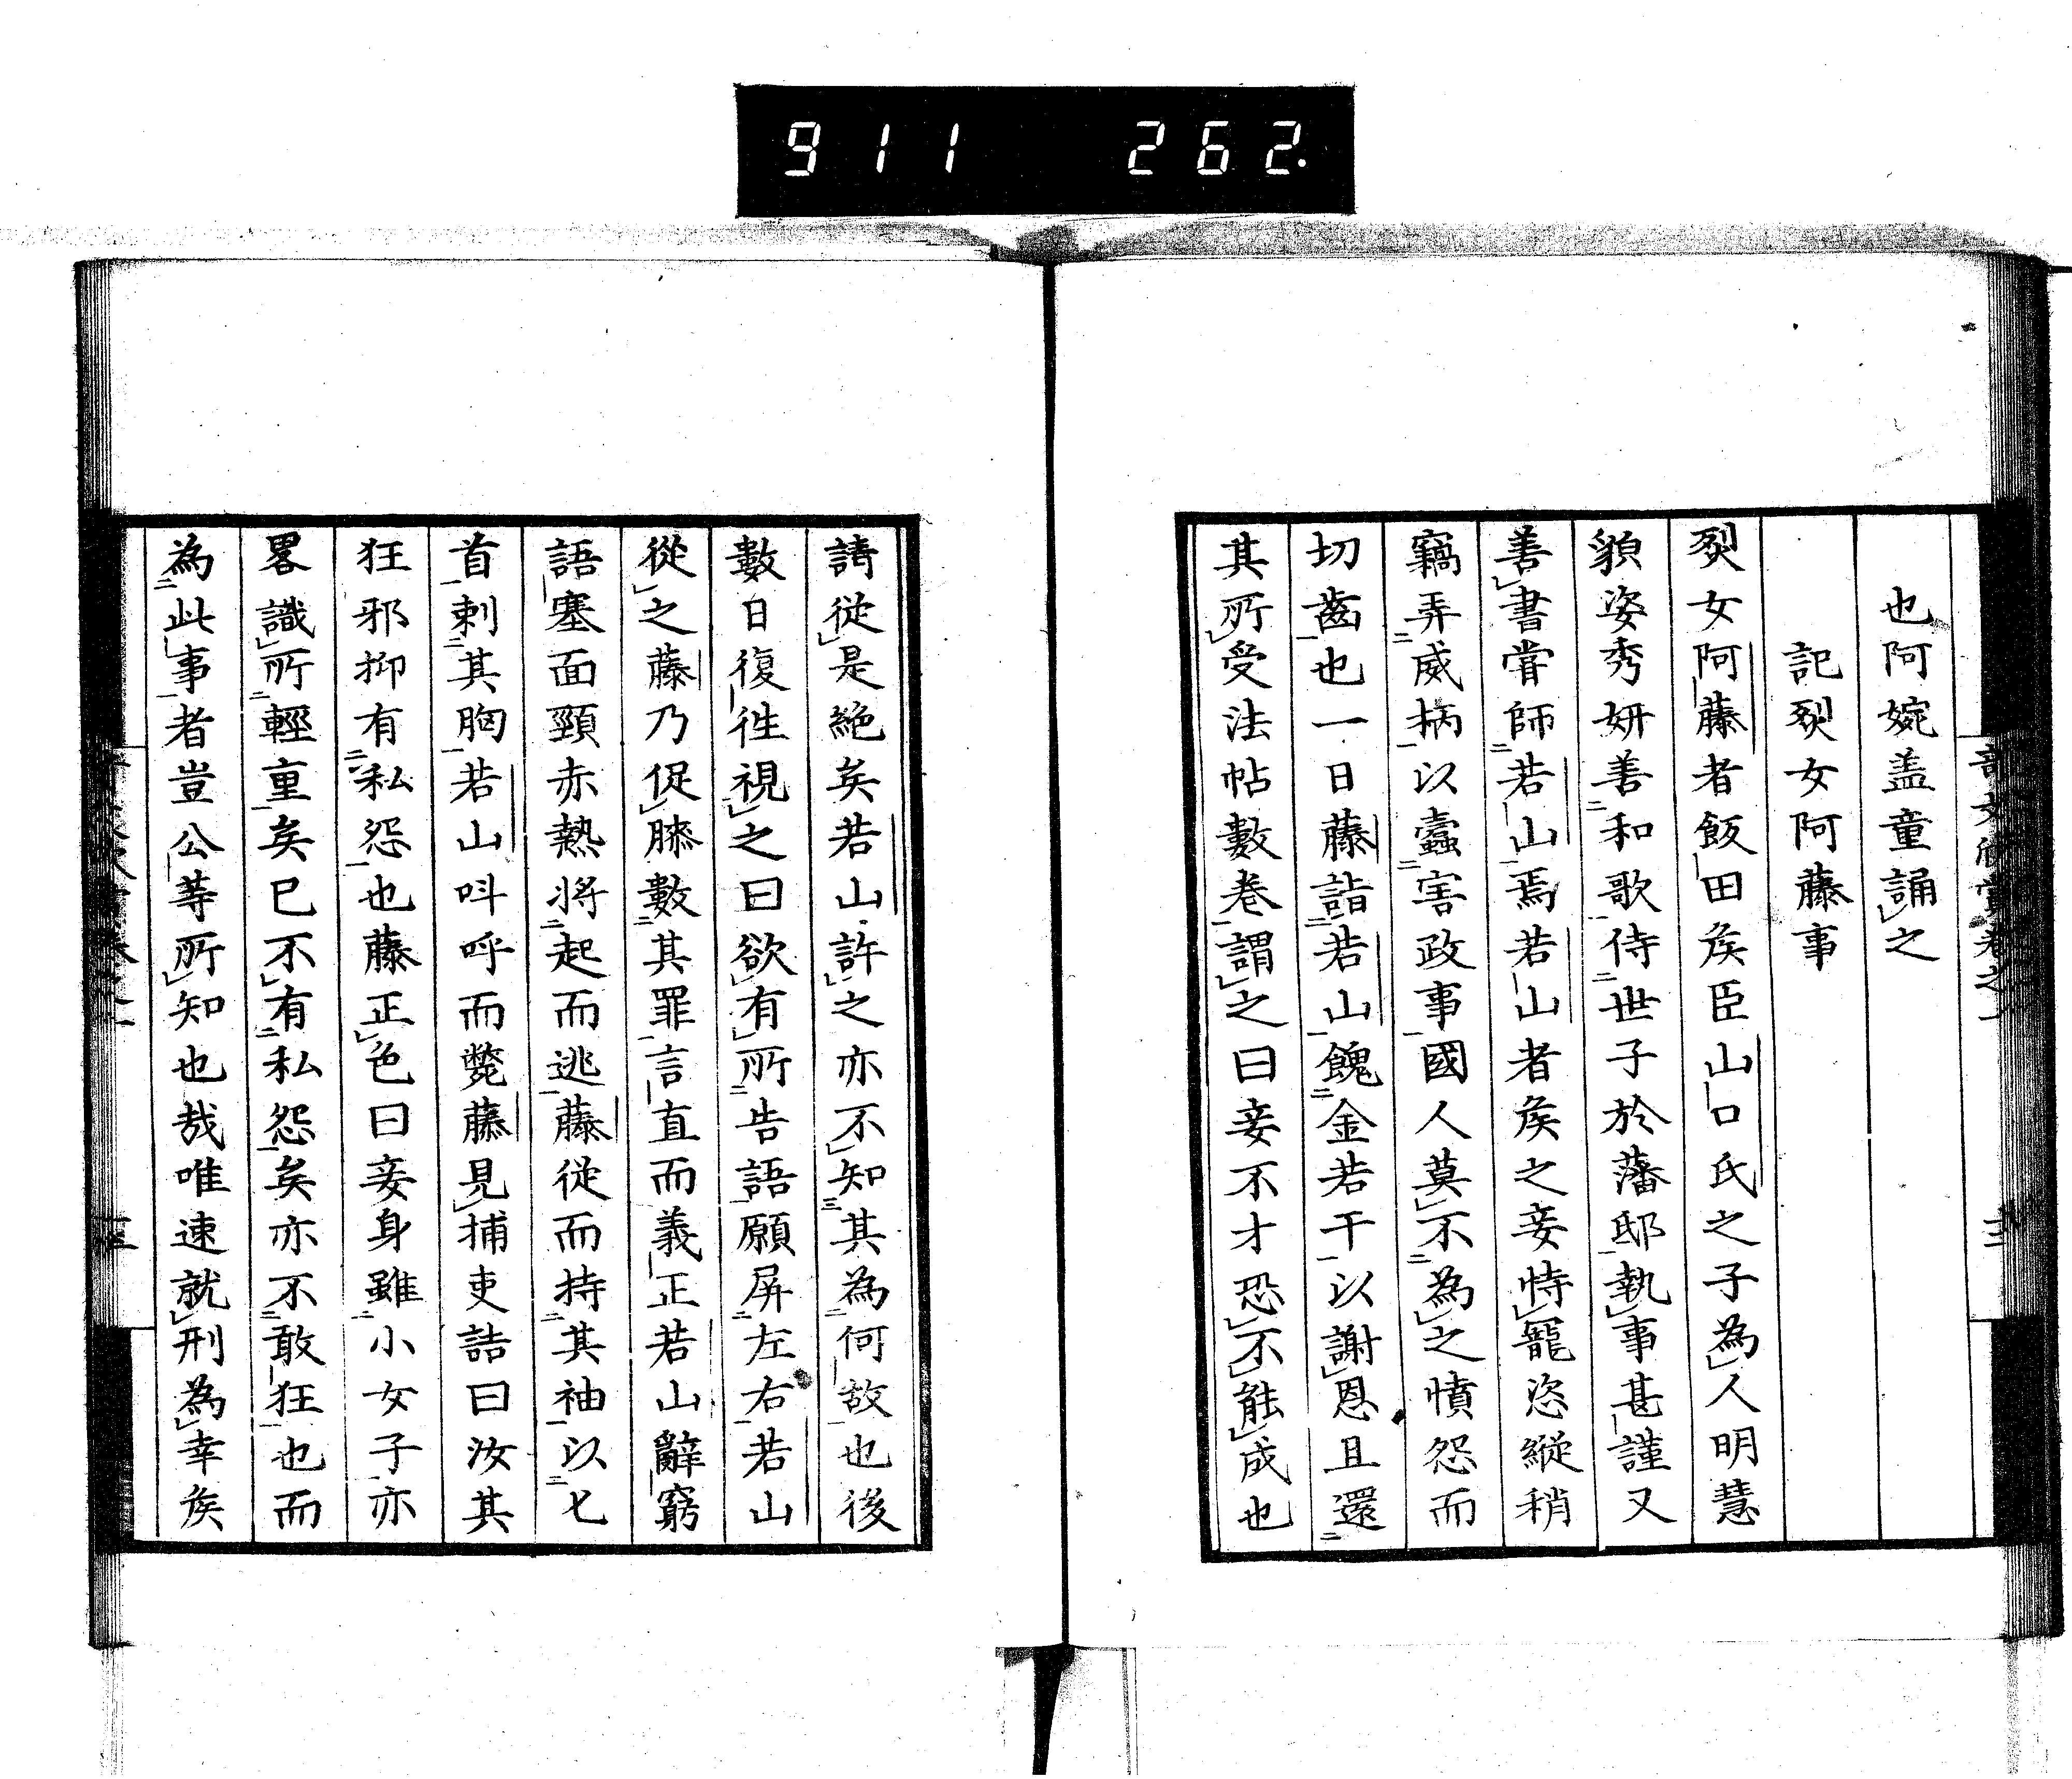 911 262.
也阿婉盖童誦之
記烈女阿藤事
烈女阿藤者飯田矦臣山口氏之子為人明慧
貌姿秀妍善和歌侍世子於藩邸執事甚謹又
善書甞師若山焉若山者矦之妾恃寵恣縱稍
竊弄威柄以蠧害政事國人莫不為之憤怨而
切齒也一日藤詣若山餽金若干以謝恩且還
其所受法帖數卷謂之曰妾不才恐不能成也
請從是絶矣若山許之亦不知其為何故也後
數日復徃視之曰欲有所告語願屏左右若山
從之藤乃促膝數其罪言直而義正若山辭窮
語塞面頸赤熱将起而逃藤從而持其袖以匕
首刺其胸若山呌呼而斃藤見捕吏詰曰汝其
狂邪抑有私怨也藤正色曰妾身雖小女子亦
畧識所輕重矣已不有私怨矣亦不敢狂也而
為此事者豈公等所知也哉唯速就刑為幸矦